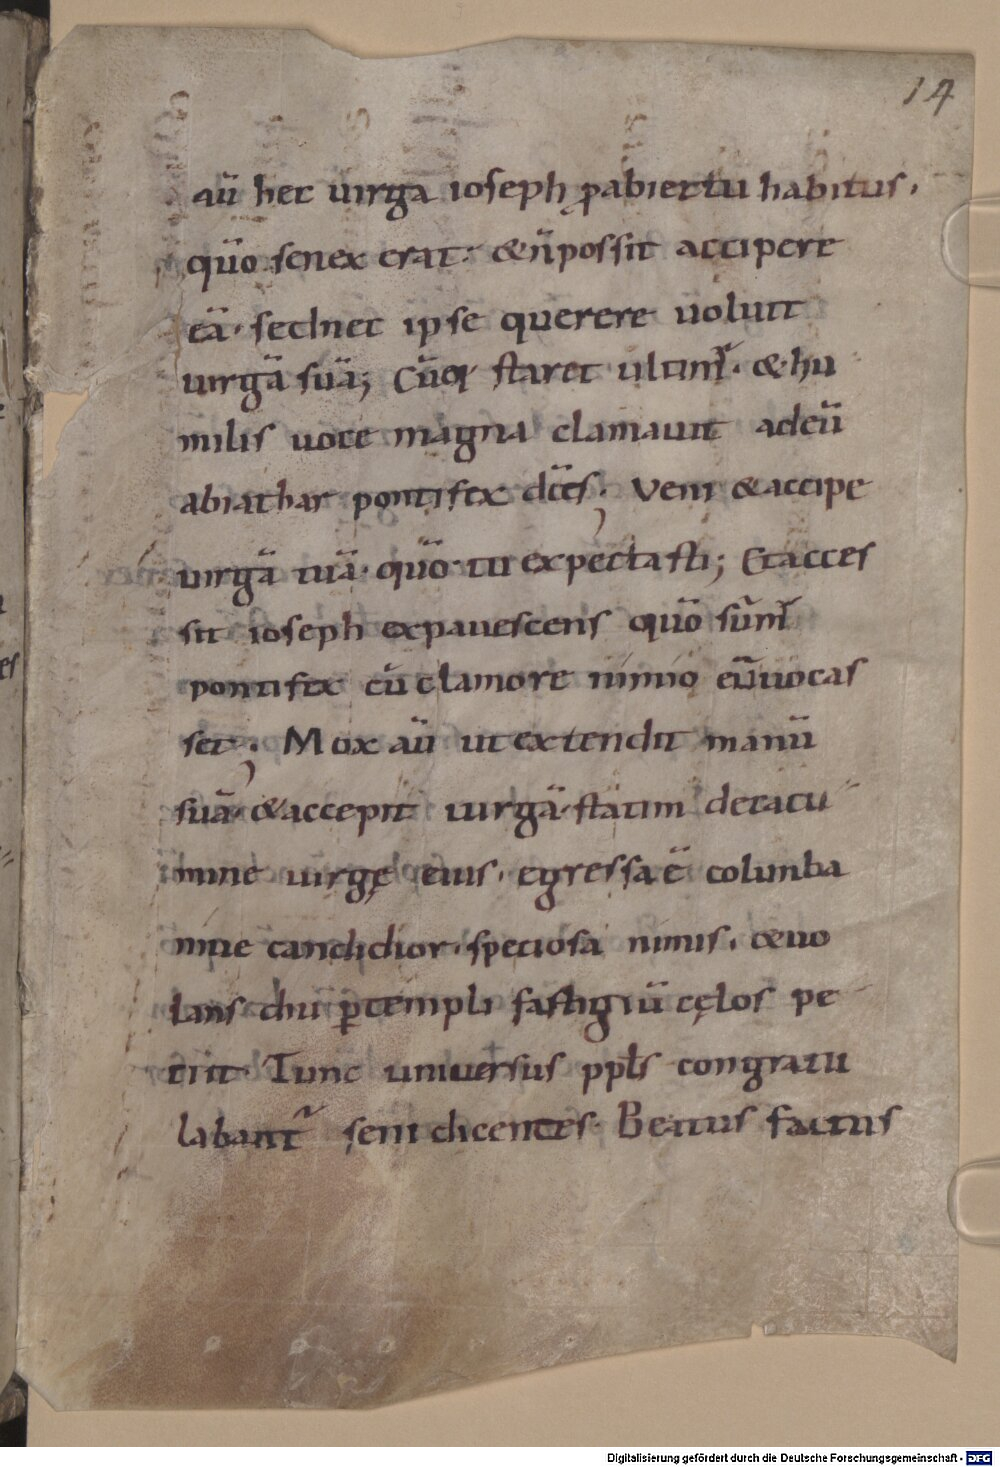 14
aū hec uirga ioseph ꝓabiectu habitus.
qūo senex erat. &n̄possit accipere
eā. sed nec ipse querere uoluit
uirgā suā; Cūq; staret ultim᷒. & hu
milis uoce magna clamauit adeū
abiathar pontifex dīces. Veni & accipe
uirgā tuā. qūo tu expectasti; Et acces
sit ioseph expauescens qūo sūm᷒
pontifex cū clamore nimio eūuocas
set; Mox aū ut extendit manū
suā. & accepit uirgā. statim decacu
mine uirgę eius. egressa ē columba
niue candidior. speciosa nimis. & uo
lans diu ꝑtempli fastigiū cęlos pe
tiit. Tunc uniuersus ppl̄s congratu
labant᷒ seni dicentes. Beatus factus
Digitalisierung gefördert durch die Deutsche Forschungsgemeinschaft - DFG